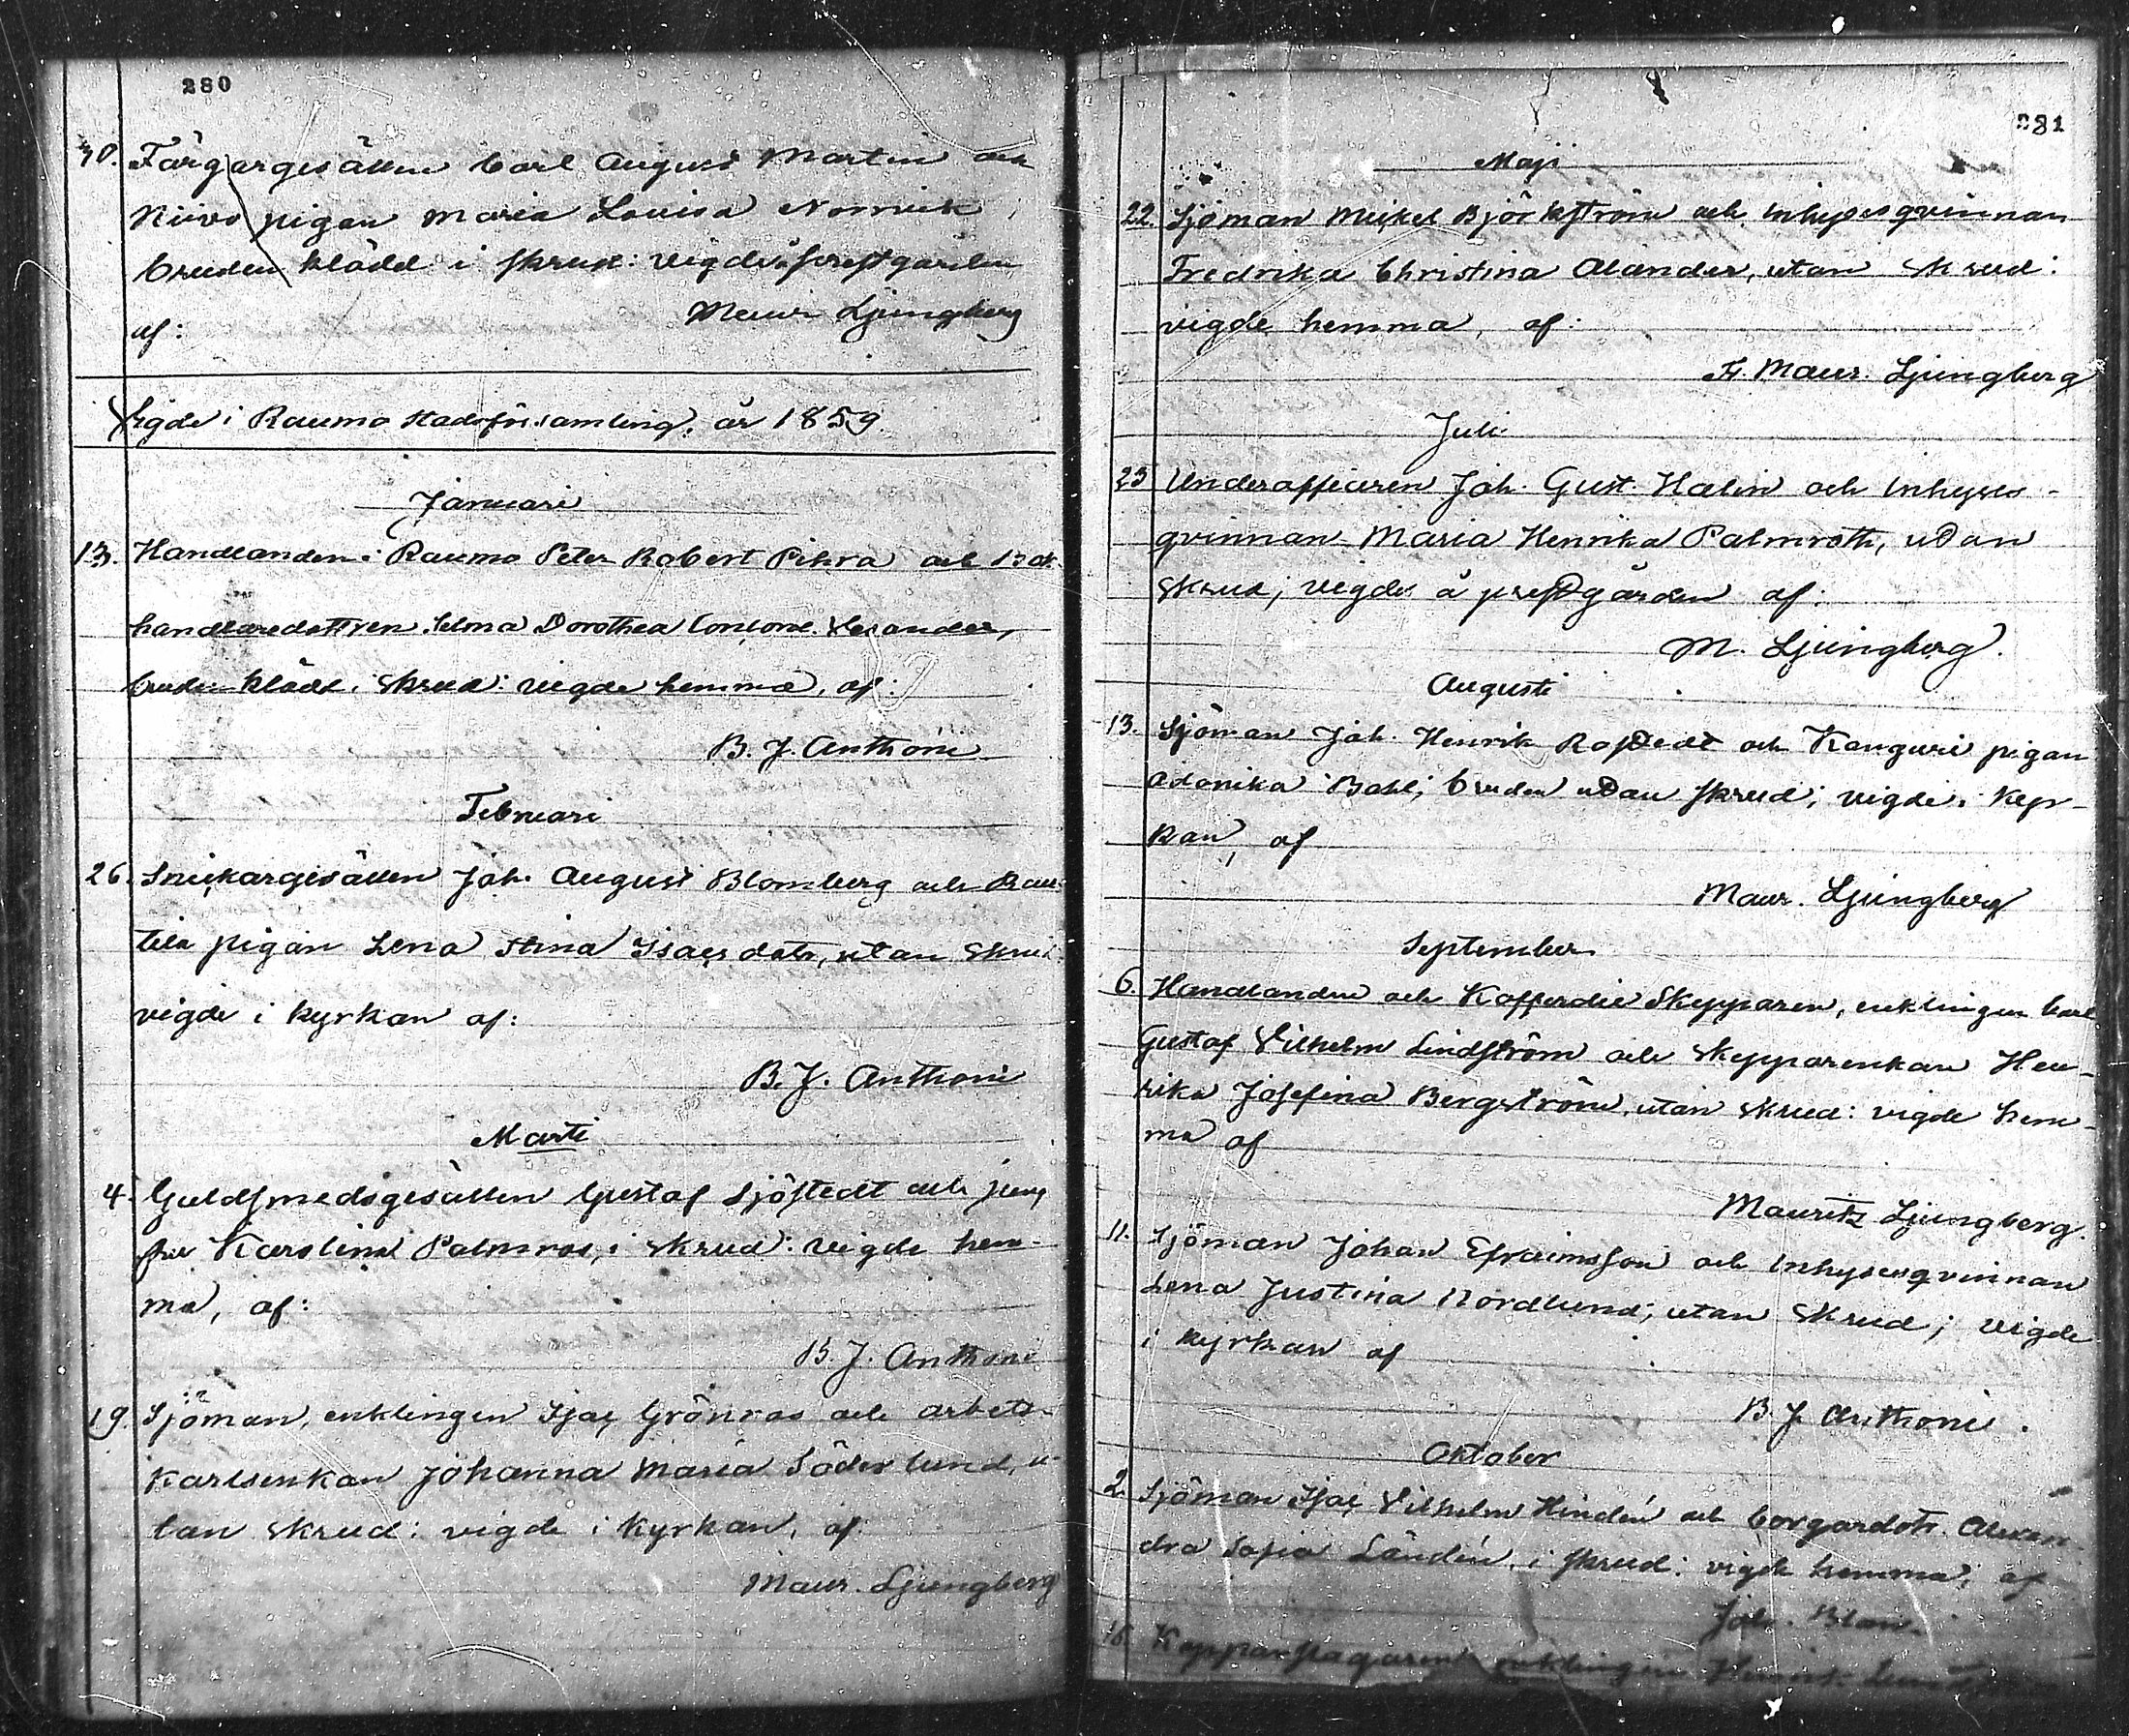 280
30. Färgargesällen Carl August Martin och
Kiivo pigan Maria Lovisa Norrvik,
bruden klädd i skrud: vigde å prestgården
af: Maur. Ljungberg
Vigde i Raumo stadsförsamling, år 1859.
Januari
13. Handlanden i Raumo Peter Robert Pihra och Bok-
handlaredottren Selma Dorothea Concord.
bruden klädd i skrud: vigde hemma, af:
B. J. Anthoni
Februari
26. Snickargesällen Joh. August Blomberg och Rau-
tila pigan Lena Stina Isacsdotr, utan skrud
vigde i kyrkan af:
B. J. Anthoni
Marti
4. Guldsmedsgesällen Gustaf Sjöstedt och jung
fru Karolina Palmros, i skrud: vigde hem-
ma, af:
B. J. Anthoni
19. Sjöman, enklingen Isac Grönros och arbets-
karlsenkan Johanna Maria Söderlund, u-
tan skrud: vigde i kyrkan, af:
Maur. Ljungberg
281
Maji
22. Sjöman Mickel Björkström och inhysesqvinnan
Fredrika Christina Alander, utan skrud:
vigde hemma, af:
Fr. Maur. Ljungberg
Juli
23 Underofficeren Joh. Gust. Halin och inhyses-
qvinnan Maria Henrika Palmroth, utan
skrud; vigde å prestgården af:
M. Ljungberg.
Augusti
13. Sjöman Joh. Henrik Rostedt och Kanguri pigan
Adonika Bohl; bruden utan skrud; vigde i kyr-
kan, af
Maur. Ljungberg
September
6. Handlanden och Kofferdie Skepparen, enklingen Carl
Gustaf Vilhelm Lindström och skepparenkan Hen-
rika Josefina Bergström, utan skrud: vigde hem-
ma af
Mauritz Ljungberg.
11. Sjöman Johan Efraimsson och inhysesqvinnan
Lena Justina Nordlund; utan skrud; vigde
i kyrkan af
B. J. Anthoni.
Oktober
2. Sjöman Isac Vilhelm Hindén och borgardotr. Alexan-
dra Sofia Ländén, i skrud: vigde hemma; af
Joh. Blom.
16. Kopparslagaren enklingen